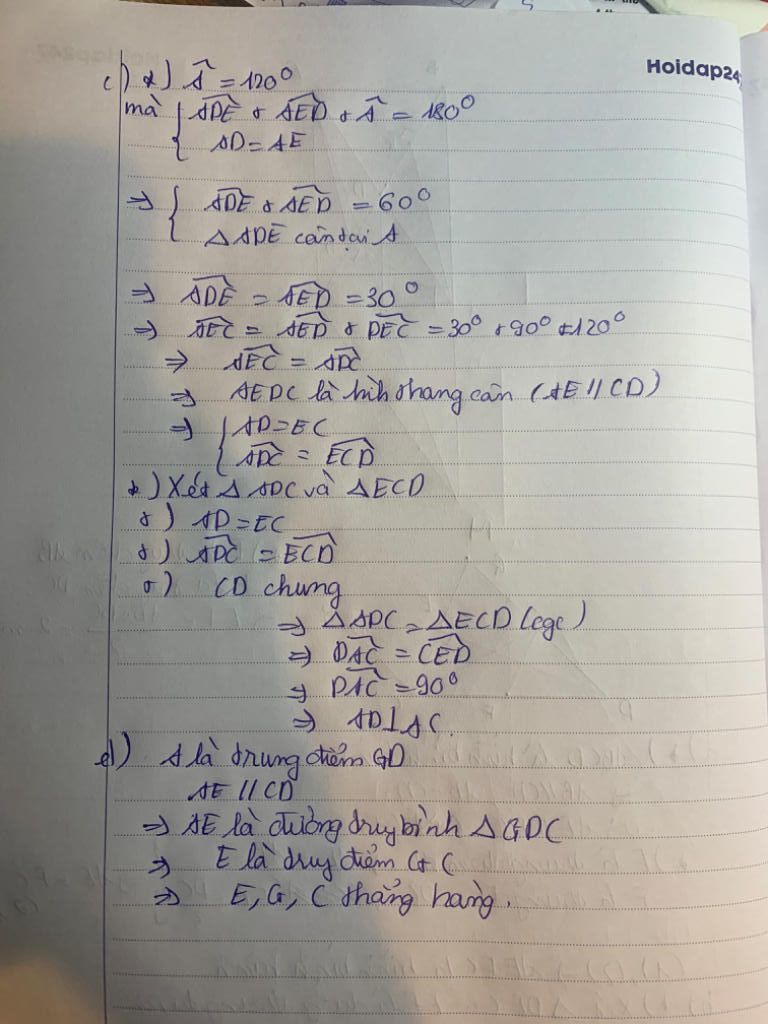 Hoidap247
c) *) Â = 120°
mà { ∠ADE + ∠AED + Â = 180°
AD = AE
=> { ∠ADE + ∠AED = 60°
△ADE cân tại A
=> ∠ADE = ∠AED = 30°
=> ∠AEC = ∠AED + ∠DEC = 30° + 90° = 120°
=> ∠AEC = ∠ADC
=> AEDC là hình thang cân (AE // CD)
=> { AD = EC
∠ADC = ∠ECD
*) Xét △ADC và △ECD
+) AD = EC
+) ∠ADC = ∠ECD
+) CD chung
=> △ADC = △ECD (cgc)
=> ∠DAC = ∠CED
=> ∠DAC = 90°
=> AD⊥AC.
d) A là trung điểm GD
AE // CD
=> AE là đường truy bình △GDC
=> E là truy điểm G C
=> E, G, C thẳng hàng.